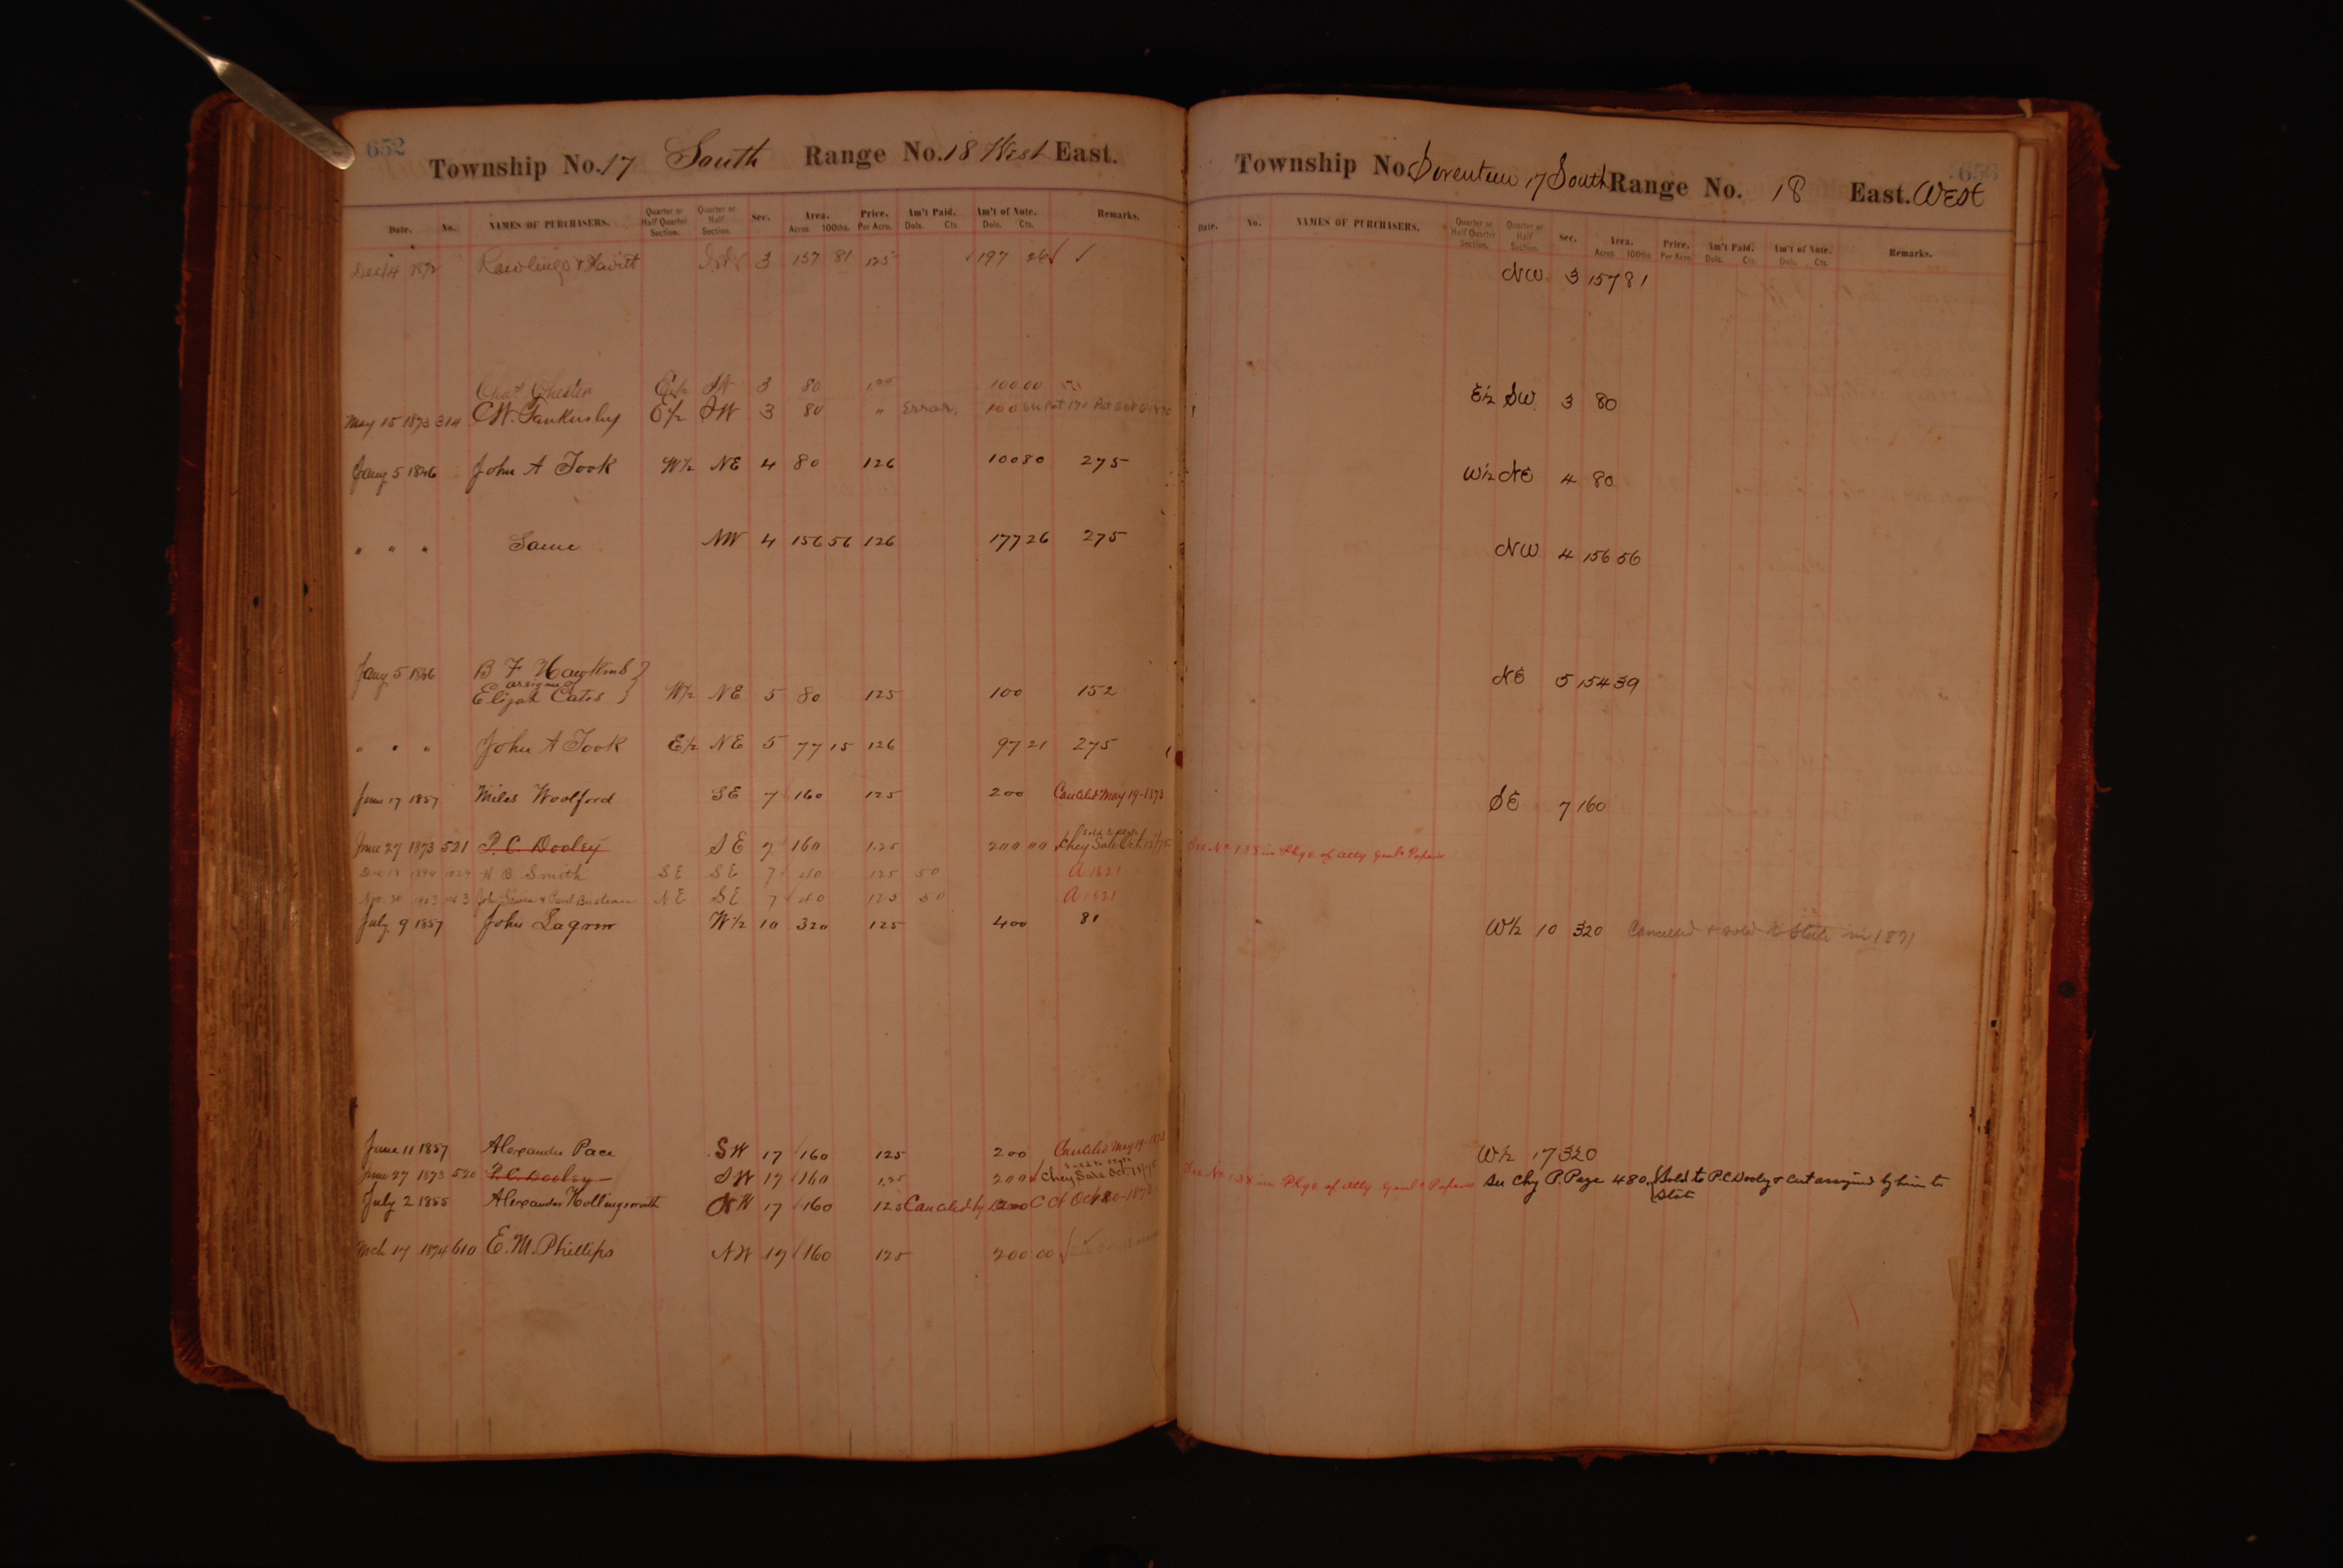 652
Township No. 17 South Range No. 18 West East.
Date. No. NAMES OF PURCHASERS. Quarter or Half Quarter Section. Quarter or Half Section. Sec. Area. Acres 100ths. Price. Per Acre. Am't Paid. Dols. Cts. Am't of Note. Dols. Cts. Remarks.
Dec 14 1872 Rawlings & NW 3 157 81 125 197 26
Chas Chester E½ SW 3 80 100 00 171
May 15 1873 314 C.W. Tankersley E½ SW 3 80 " Error. 100
Jany 5 1846 John A Took W½ NE 4 80 126 100 80 275
" " " Same NW 4 156 56 126 177 26 275
Jany 5 1846 B F Hawkins }
assignee of
Elijah Cates } W½ NE 5 80 125 100 152
" " " John A Took E½ NE 5 77 15 126 97 21 275
June 17 1857 Miles Woolford SE 7 160 125 200 Canceled May 19-1873
Sold to State
June 27 1873 521 P. C. Dooley SE 7 160 1.25 200 00 Chcy Sale Oct.
Dec 18 1894 1024 H B Smith SE SE 7 40 125 50 A 1621
Nov. 30 1903 NE SE 7 40 125 50 A
July 9 1857 John W½ 10 320 125 400 81
June 11 1857 Alexander Pace SW 17 160 125 200 Canceled May 19-1873
Sold to State
June 27 1873 520 P. C. Dooley SW 17 160 1.25 200 Chcy Sale Oct
July 2 1855 Alexander Hollingsworth NW 17 160 125 Canceled by C Ct Oct 20-1873
Mch 17 1874 610 E. M. Phillips NW 17 160 125 200 00
656
Township No. Seventeen 17 South Range No. 18 East. West
Date. No. NAMES OF PURCHASERS. Quarter or Half Quarter Section. Quarter or Half Section. Sec. Area. Acres 100ths Price. Per Acre Am't Paid. Dols. Cts. Am't of Note. Dols. Cts. Remarks.
NW 3 157 81
E½ SW 3 80
W½ NE 4 80
NW 4 156 56
NE 5 154 39
SE 7 160
See No 138 in Pkge of Atty Genls Papers
W½ 10 320 Cancelled & sold to State in 1871
W½ 17 320
See No 138 in Pkge of Atty Genls Papers See Chy P. Page 480. { Sold to P.C. Dooley & Cert assigned by him to
State